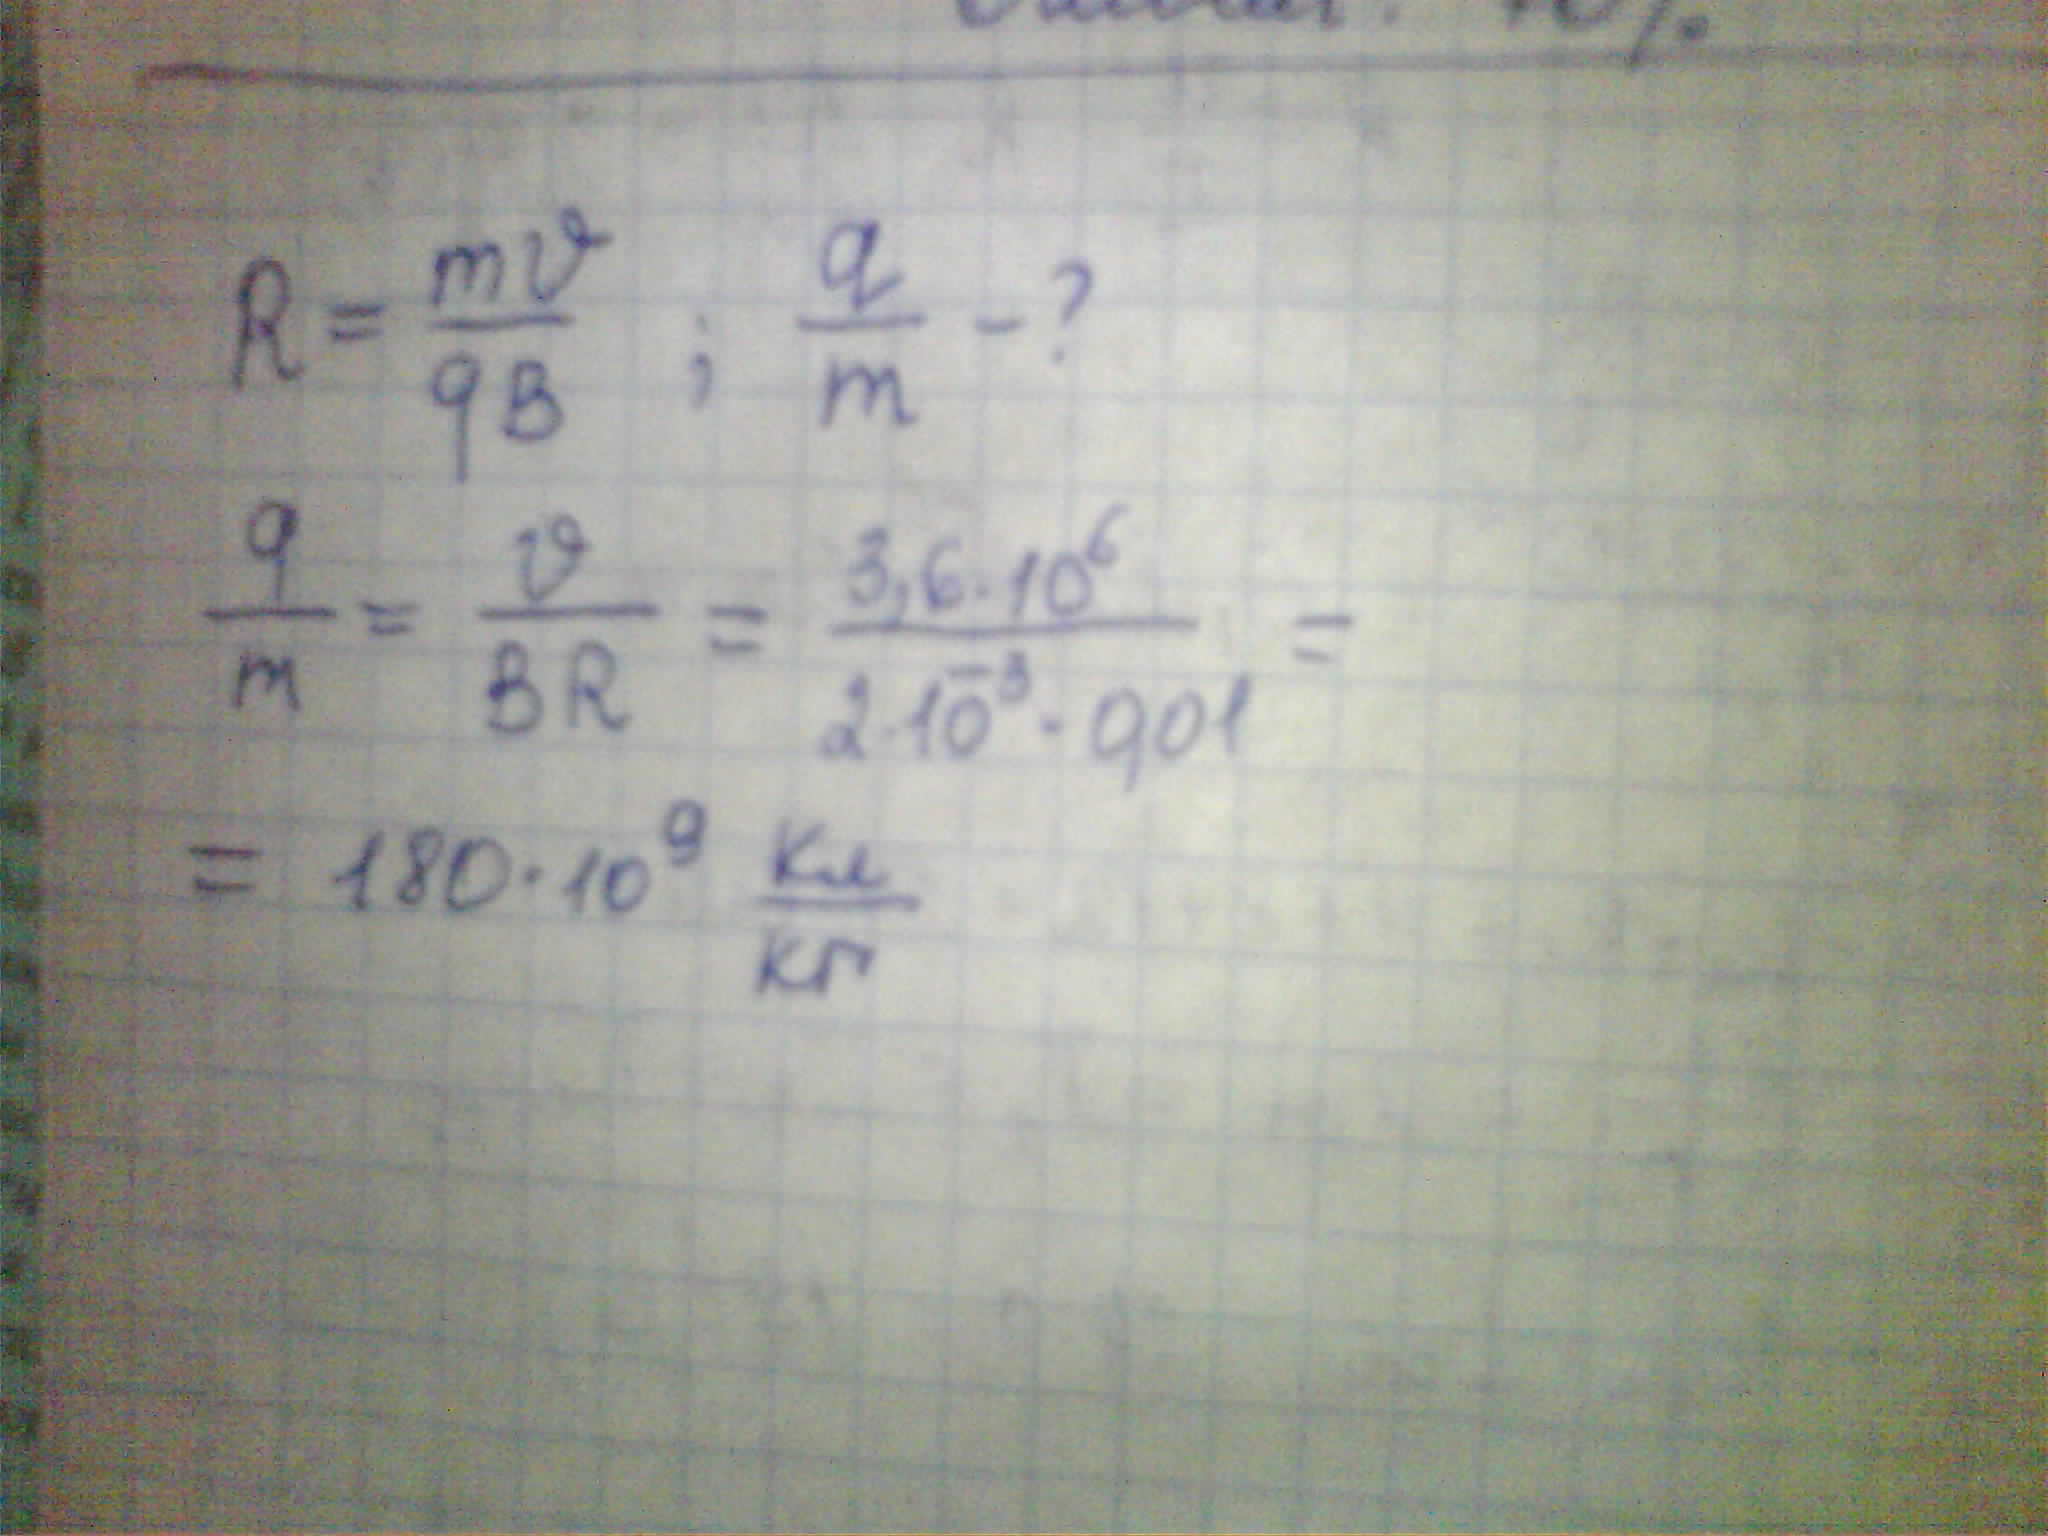 10%.
R = mv/qB ; q/m - ?
q/m = v/BR = 3,6·10⁶/2·10⁻³·0,01 =
= 180·10⁹ Кл/кг